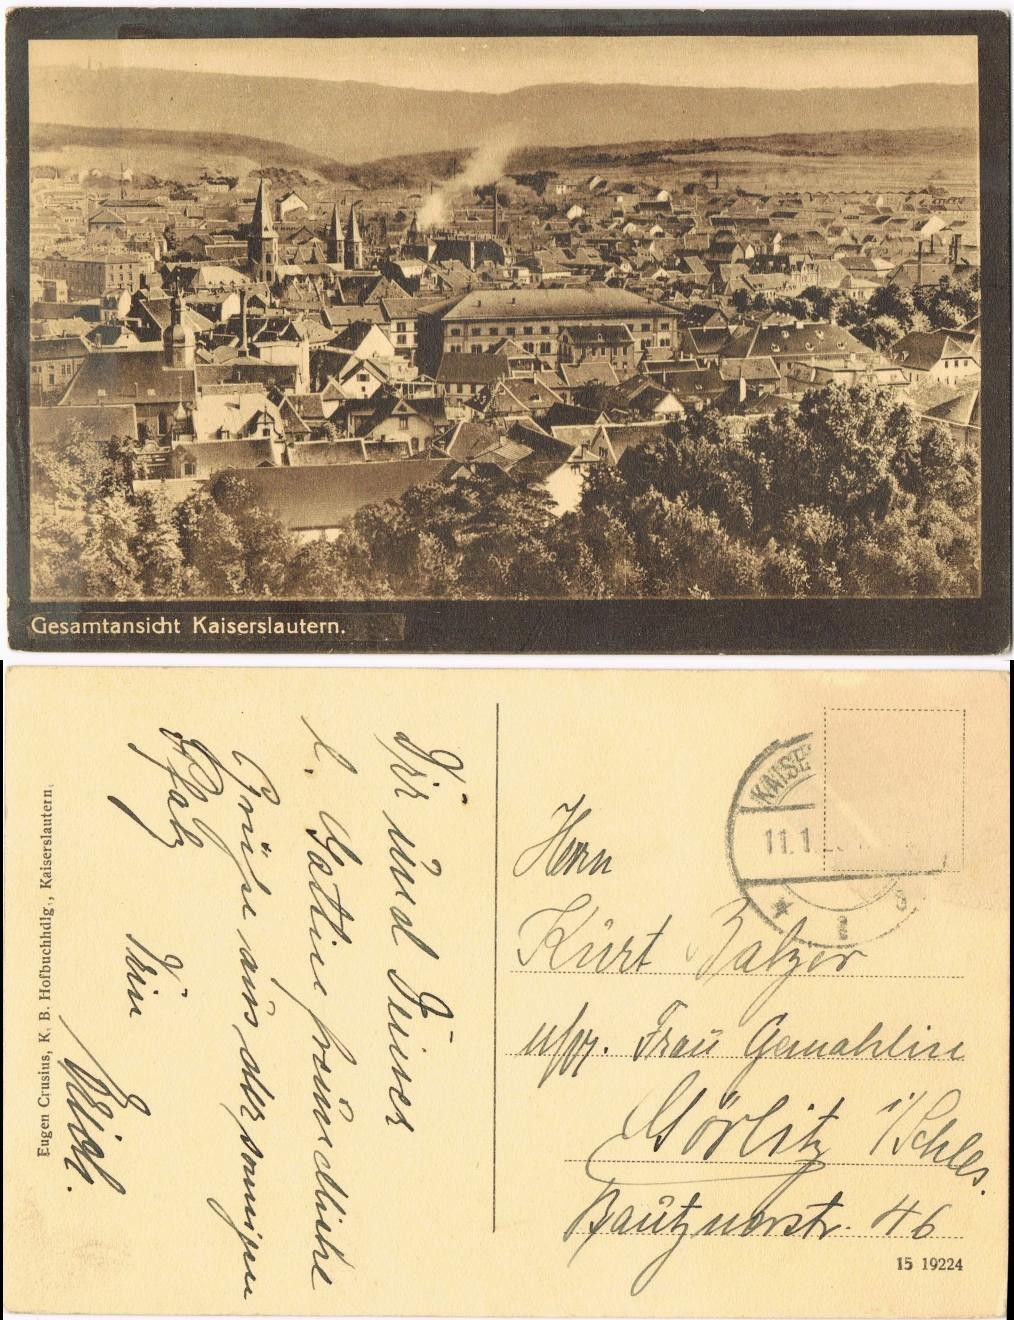 Gesamtansicht Kaiserslautern.
Eugen Crusius, K. B. Hofbuchhdlg., Kaiserslautern.
Dir und Deiner
l. Gattin freundliche
Grüße aus der sonnigen
Pfalz
Dein
KAISE
11.1.2
Herrn
Kurt Balzer
u. Frau Gemahlin
Görlitz i/Schles.
Bautznerstr. 46
15 19224